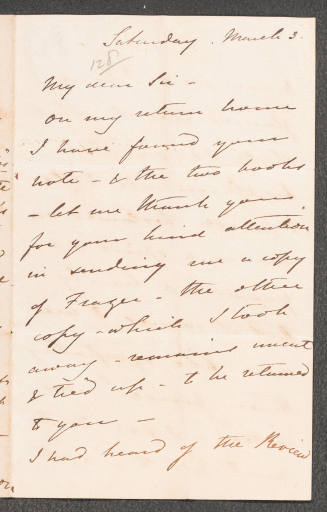 Saturday. March 3.
128
My dear Sir -
on my return home
I have found your
note - & the two books
- let me thank you
for your kind attention
in sending me a copy
of Frazer - the other
copy - which I took
away - remains uncut
& tied up - to be returned
to you -
I had heard of the Review